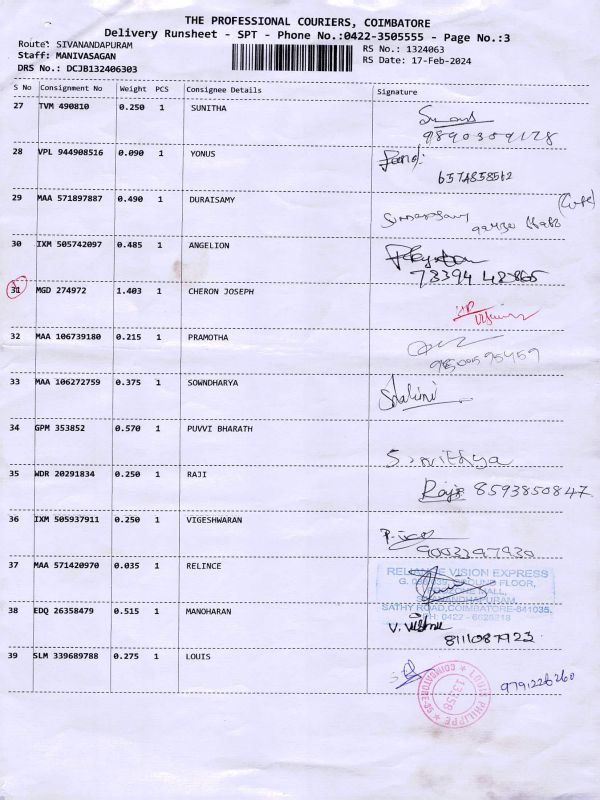 THE PROFESSIONAL COURIERS, COIMBATORE
Delivery Runsheet - SPT - Phone No.:0422-3505555 - Page No.:3
Route: SIVANANDAPURAM
Staff: MANIVASAGAN
DRS No.: DCJB132406303
RS No.: 1324063
RS Date: 17-Feb-2024
S No Consignment No Weight PCS Consignee Details Signature
27 TVM 490810 0.250 1 SUNITHA
9890359128
28 VPL 944908516 0.090 1 YONUS
29 MAA 571897887 0.490 1 DURAISAMY
30 IXM 505742097 0.485 1 ANGELION
31 MGD 274972 1.403 1 CHERON JOSEPH
32 MAA 106739180 0.215 1 PRAMOTHA
9500595459
33 MAA 106272759 0.375 1 SOWNDHARYA
Shalini
34 GPM 353852 0.570 1 PUVVI BHARATH
35 WDR 20291834 0.250 1 RAJI
Raji 8593850847
36 IXM 505937911 0.250 1 VIGESHWARAN
9003397930
37 MAA 571420970 0.035 1 RELINCE
RELIANCE VISION EXPRESS
FLOOR,
SATHY ROAD, COIMBATORE-641035.
PH: 0422 - 6626218
38 EDQ 26358479 0.515 1 MANOHARAN
8111087923
39 SLM 339689788 0.275 1 LOUIS
LOUIS PHILIPPE
COIMBATORE
13:58
9791226260